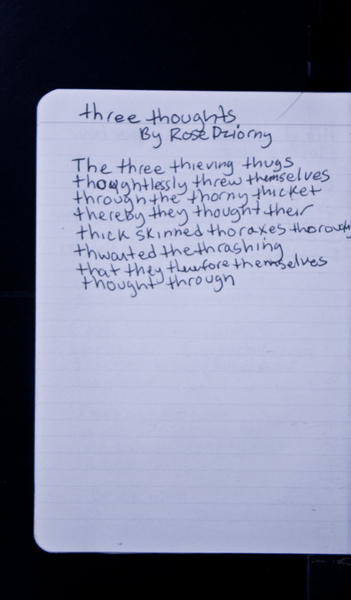 three thoughts
By Rose Dziorny
The three thieving thugs
thoughtlessly threw themselves
through the thorny thicket
thereby they thought their
thick skinned thoraxes
thwarted the thrashing
that they therefore themselves
thought through